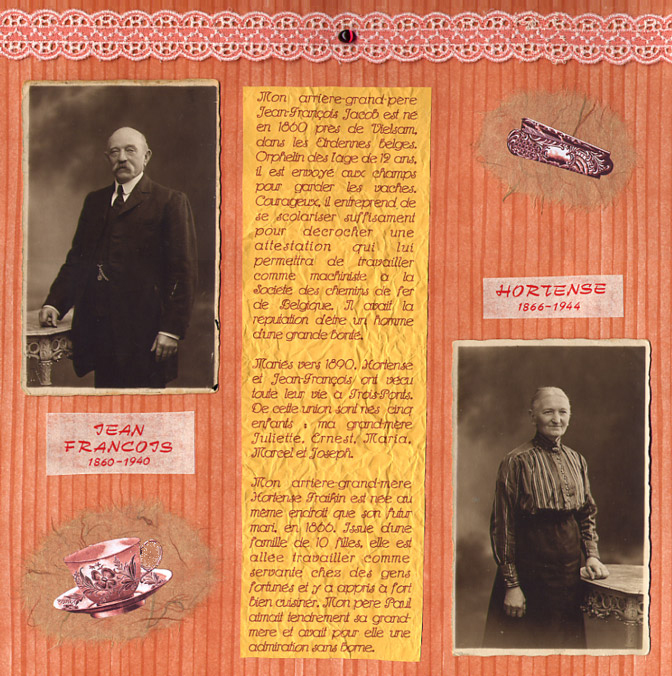 Mon arrière-grand-père
Jean-François Jacob est né
en 1860 près de Vielsam,
dans les Ardennes belges.
Orphelin dès l'âge de 12 ans,
il est envoyé aux champs
pour garder les vaches.
Courageux, il entreprend de
se scolariser suffisament
pour décrocher une
attestation qui lui
permettra de travailler
comme machiniste à la
Société des chemins de fer
de Belgique. Il avait la
réputation d'être un homme
d'une grande bonté.
Mariés vers 1890, Hortense
et Jean-François ont vécu
toute leur vie à Trois-Ponts.
De cette union sont nés cinq
enfants : ma grand-mère
Juliette, Ernest, Maria,
Marcel et Joseph.
Mon arrière-grand-mère
Hortense Fraikin est née au
même endroit que son futur
mari, en 1866. Issue d'une
famille de 10 filles, elle est
allée travailler comme
servante chez des gens
fortunés et y a appris à fort
bien cuisiner. Mon père Paul
aimait tendrement sa grand-
mère et avait pour elle une
admiration sans borne.
JEAN
FRANCOIS
1860-1940
HORTENSE
1866-1944